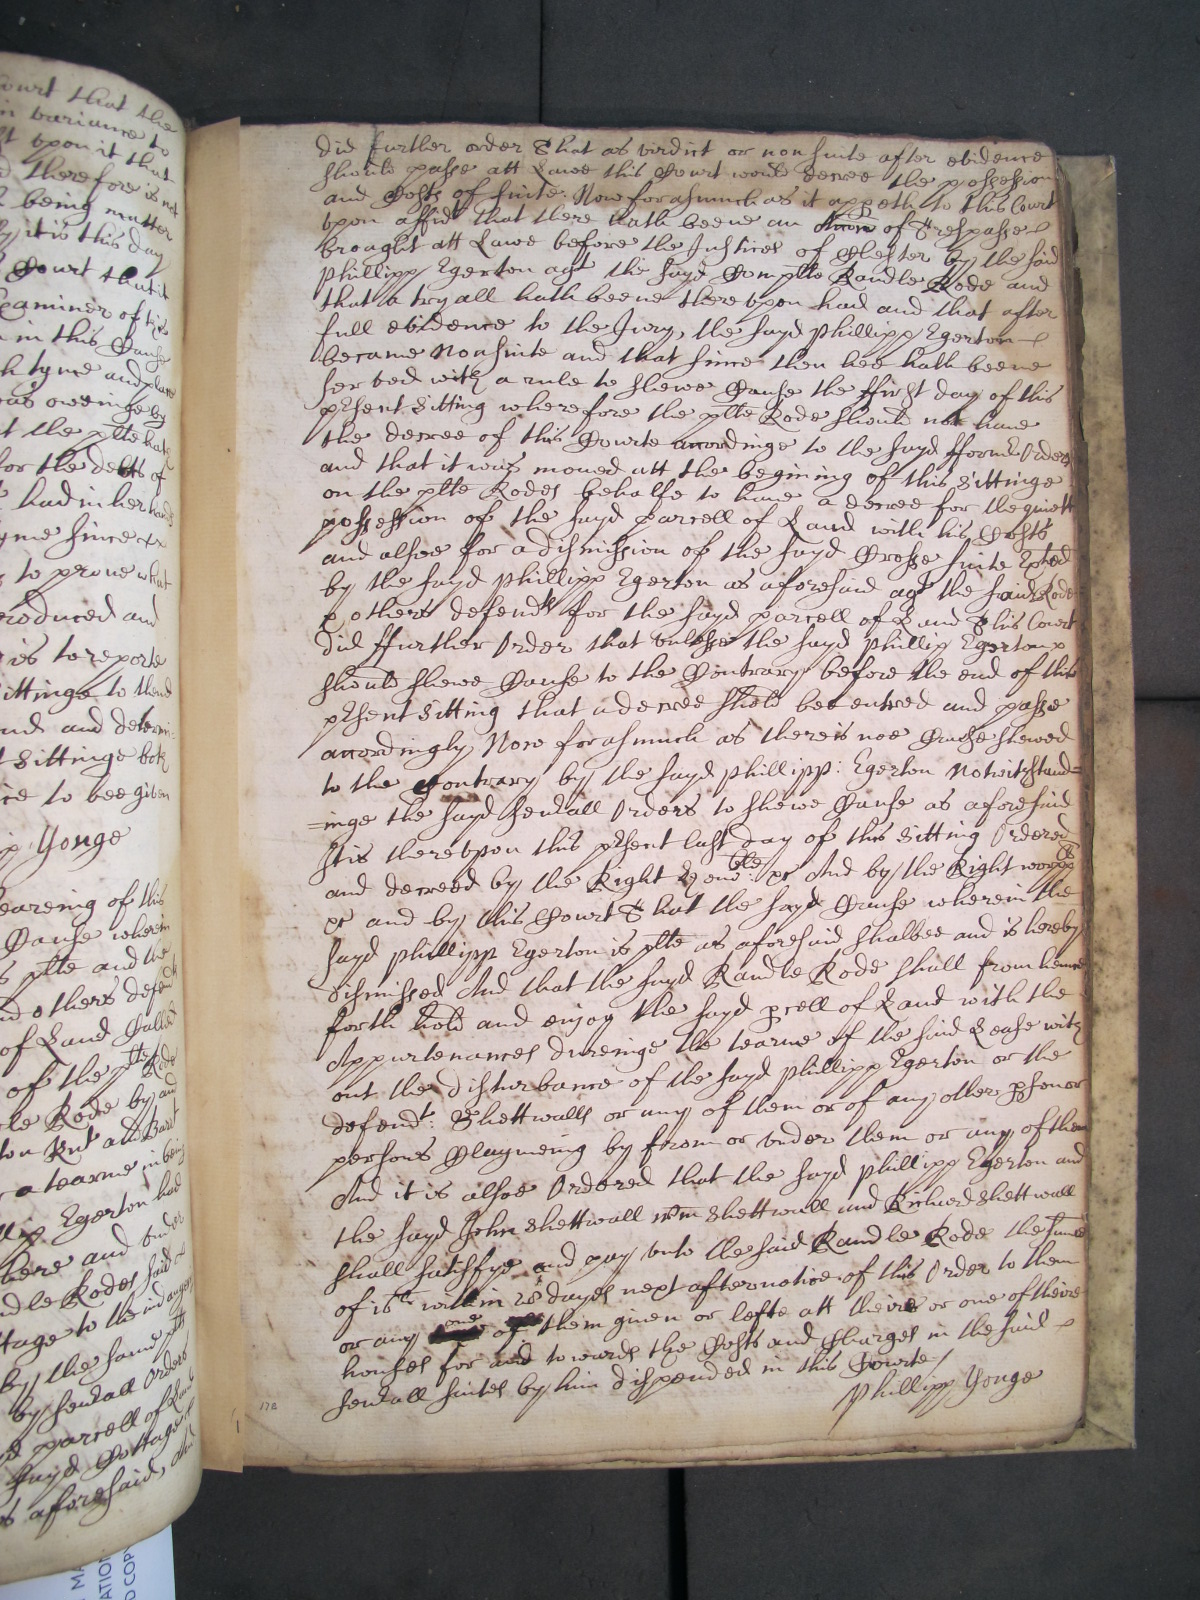 did further order That as verdict or nonsuite after evidence
should passe att Lawe this Court would decree the possession
and Costs of suite. Now forasmuch as it appeth to this Court
vpon affidt that there hath beene an Accon of Trespasse
brought att Lawe before the Justices of Chester by the said
Phillipp Egerton agt the sayd Complte Randle Rode and
that a tryall hath beene therevpon had and that after
full evidence to the Jury, the sayd Phillipp Egerton
became Nonsuite and that since then hee hath beene
served with a rule to shewe Cause the ffirst day of this
psent Sitting wherefore the plte Rode should not haue
the decree of this Courte accordinge to the sayd fformr Orders
and that it was moued att the begining of this Sittinge
on the plte Rodes behalfe to haue a decree for the quiett
possession of the sayd parcell of Land with his Costs
and alsoe for a dismission of the sayd Crosse suite
by the sayd Phillipp Egerton as aforesaid agt the said Rode
& others defendts for the sayd parcell of Land This Court
did ffurther Order that vnlesse the sayd Phillip Egerton
should shewe Cause to the Contrary before the end of this
psent Sitting that a decree shold bee entred and passe
accordingly, Now forasmuch as there is noe Cause shewed
to the Contrary by the sayd Phillipp: Egerton Notwithstand=
=inge the sayd seuerall Orders to shewe Cause as aforesaid
It is therevpon this psent last day of this Sitting Ordered
and decreed by the Right honoble: &c And by the Right worpp
&c and by this Court That the sayd Cause wherein the
sayd Phillipp Egerton is plte as aforesaid shalbee and is hereby
dismissed And that the sayd Randle Rode shall from hence
forth hold and enjoy the sayd pcell of Land with the
Appurtenances dureinge the tearme of the said Lease with
out the disturbance of the sayd Phillipp Egerton or the
defendt: Shettwalls or any of them or of any other pson or
persons Claymeing by from or vnder them or any of them
And it is alsoe Ordered that the sayd Phillipp Egerton and
the sayd John Shettwall Wm Shettwall and Richard Shettwall
shall satisfye and pay vnto the said Randle Rode the summe
of within 28 dayes next after notice of this Order to them
or any one of them given or lefte att theire or one of theire
houses for and towards the Costs and Charges in the said
seuerall suites by him dispended in this Courte /
Phillipp Yonge
178
ourt that the
in variance to
vpon it that
therefore is not
being matter
it is this day
Court that it
Examiner of this
in this Cause
tyme and place
was oweinge by
the plte hath
for the debts of
had in her hands
tyme since
to proue what
produced and
is to reporte
Sittinge to thend
and determi=
Sittinge both
to bee given
Yonge
heareing of this
Cause wherein
plte and the
and others defendt
of Land Called
of the plte Rode
Rode by an
Knt and Bart
a tearme in being
Egerton had
here and vnder
Randle Rodes said
by the same plte
by seuerall Orders
parcell of Land
sayd Cottage
as aforesaid, and